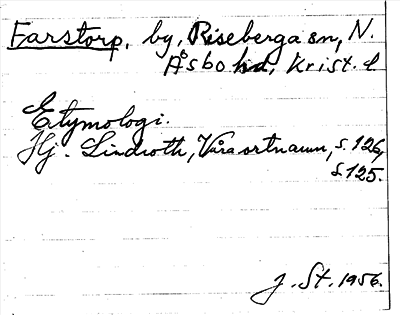 Farstorp, by, Riseberga sn, N.
Åsbo hd, Krist. l
Etymologi.
Hj. Lindroth, Våra ortnamn, s. 126,
s. 125.
J. St. 1956.